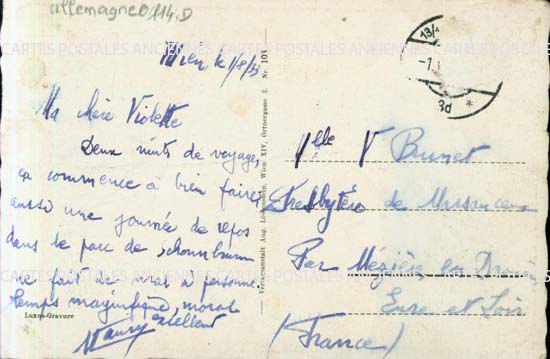 allemagne 0114.D
CARTES POSTALES ANCIENNES CARTES POSTALES ANCIENNES
Wien, le 1/8/39
Ma chère Violette
Deux nuits de voyage,
ça commence à bien faire,
aussi une journée de repos
dans le parc de Schoenbrunn
ne fait de mal à personne.
Temps magnifique, moral
excellent
Luxus-Gravure
Verlagsanstalt Aug. Wien XIV, Gürtnergasse 3. Nr. 103
13/1
-1.
3d *
Mlle V Brunet
Presbytère de
Par Mézières en Drouais
Eure et Loir
(France)